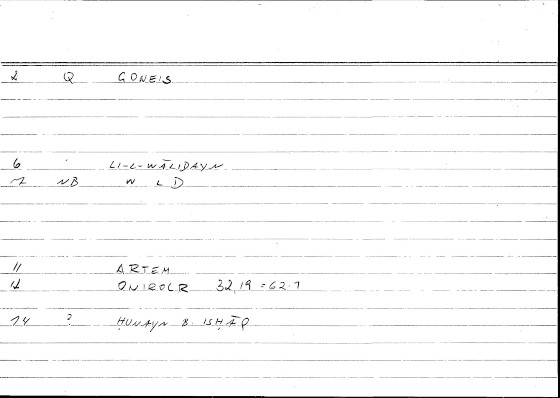 2 Q GONEIS
6 LI-L-WĀLIDAYN
7 NB W L D
11 ARTEM
12 ONIROCR 32,19 = 62.7
14 ? ḤUNAYN B. ISḤĀQ